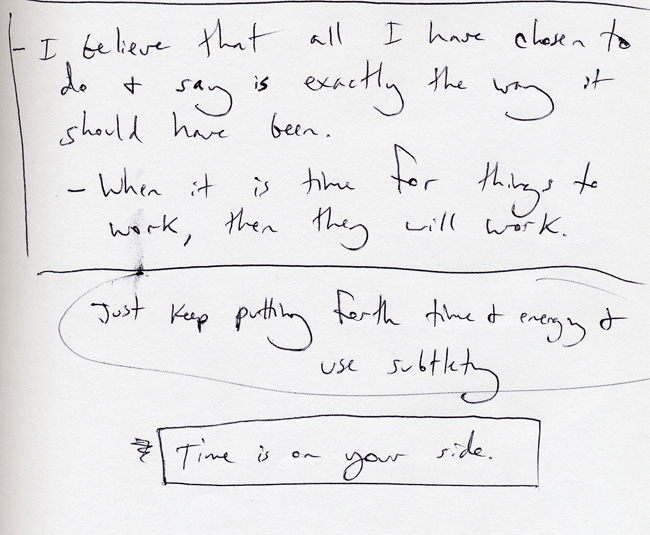 - I believe that all I have chosen to
do & say is exactly the way it
should have been.
- When it is time for things to
work, then they will work.
Just keep putting forth time & energy &
use subtlety
Time is on your side.